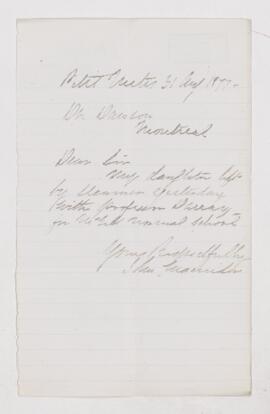 Petit Metis 31 Aug 1877.
Dr Dawson
Montreal
Dear Sir
My daughter left
by Steamer yesterday
with Professor
for McGill Normal School
Yours Respectfully
John